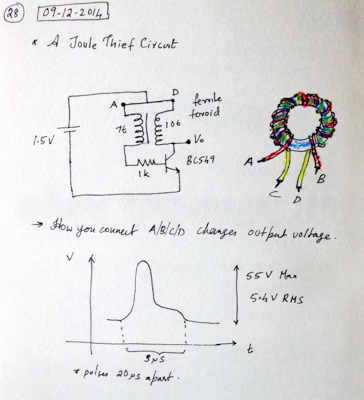 28 09-12-2014
* A Joule Thief Circuit
A D
ferrite
toroid
1.5V
7t 10t
Vo
BC549
1k
A
B
C
D
→ How you connect A/B/C/D changes output voltage.
V
55V Max
5.4V RMS
t
3µs
* pulses 20µs apart.